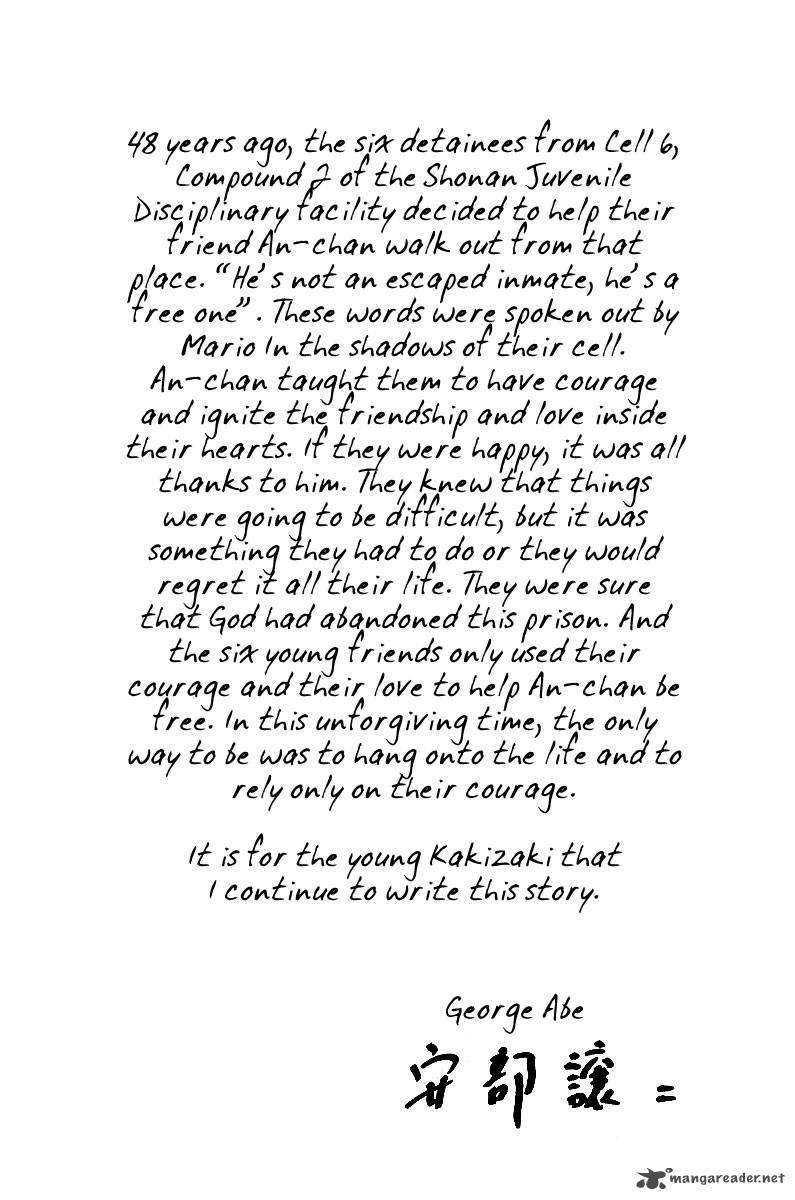 48 years ago, the six detainees from Cell 6,
Compound 2 of the Shonan Juvenile
Disciplinary facility decided to help their
friend An-chan walk out from that
place. “He's not an escaped inmate, he's a
free one”. These words were spoken out by
Mario In the shadows of their cell.
An-chan taught them to have courage
and ignite the friendship and love inside
their hearts. If they were happy, it was all
thanks to him. They knew that things
were going to be difficult, but it was
something they had to do or they would
regret it all their life. They were sure
that God had abandoned this prison. And
the six young friends only used their
courage and their love to help An-chan be
free. In this unforgiving time, the only
way to be was to hang onto the life and to
rely only on their courage.
It is for the young Kakizaki that
I continue to write this story.
George Abe
安部譲二
mangareader.net